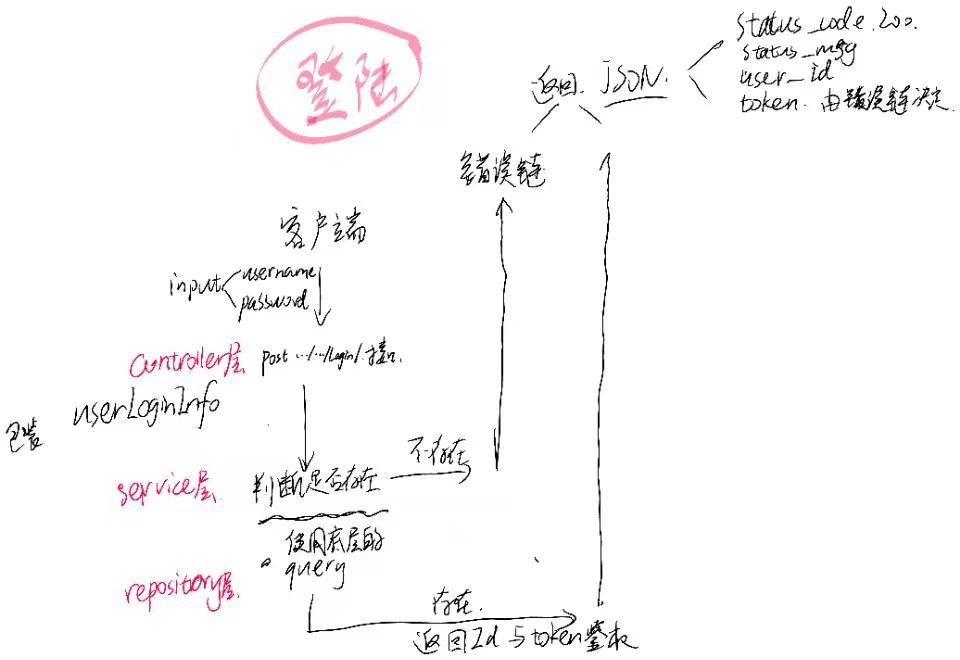 登陆
status_code.200.
status_msg
user_id
token. 由错误链决定.
返回. JSON.
错误链
客户端
input
username
password
controller层 post .../.../login/. 接口.
包装 userLoginInfo
不存在
service层. 判断是否存在
使用底层的
query
repository层.
存在.
返回Id与token鉴权